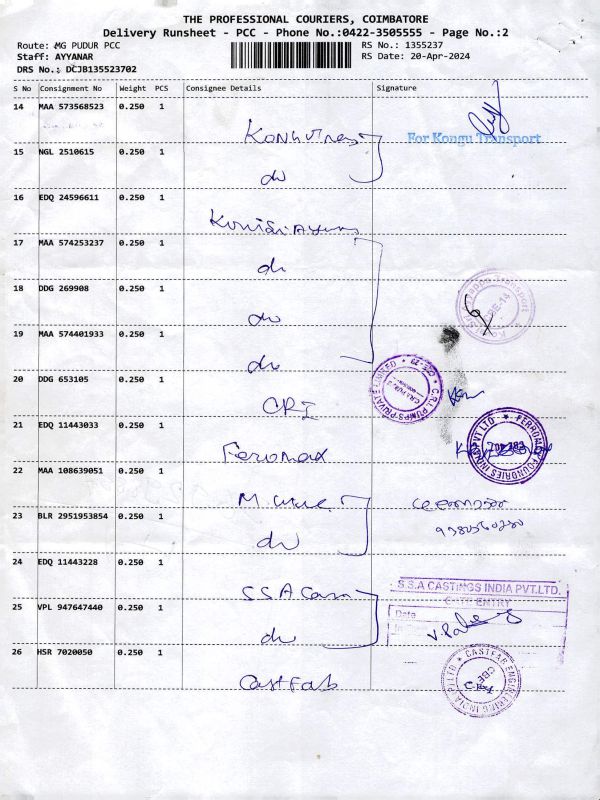 THE PROFESSIONAL COURIERS, COIMBATORE
Delivery Runsheet - PCC - Phone No.:0422-3505555 - Page No.:2
Route: MG PUDUR PCC
RS No.: 1355237
Staff: AYYANAR
RS Date: 20-Apr-2024
DRS No.: DCJB135523702
S No Consignment No Weight PCS Consignee Details Signature
14 MAA 573568523 0.250 1
For Kongu Transport
15 NGL 2510615 0.250 1
do
16 EDQ 24596611 0.250 1
17 MAA 574253237 0.250 1
do
18 DDG 269908 0.250 1
do
19 MAA 574401933 0.250 1
do
20 DDG 653105 0.250 1
CRI
C.R.I. PUMPS PRIVATE LIMITED
21 EDQ 11443033 0.250 1
Feromax
FOUNDRIES INDIA PVT LTD
22 MAA 108639051 0.250 1
23 BLR 2951953854 0.250 1
do
24 EDQ 11443228 0.250 1
S.S.A CASTINGS INDIA PVT.LTD.
ENTRY
Date
25 VPL 947647440 0.250 1
do
26 HSR 7020050 0.250 1
CastFab
CASTFAB ENGINEERING INDIA P LTD
CBE